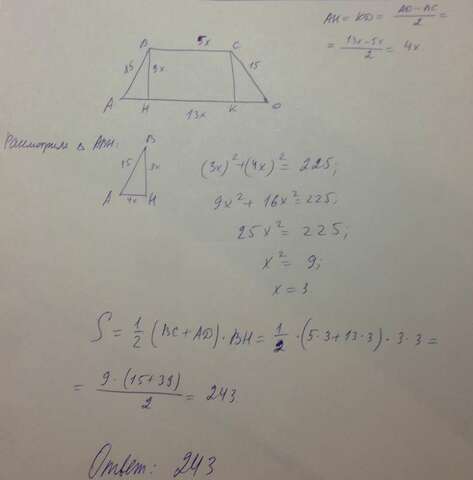 AH = KD = (AD - BC)/2 =
= (13x - 5x)/2 = 4x
5x
B C
15 3x 15
A H K D
13x
Рассмотрим Δ ABH:
B
15 3x
A 4x H
(3x)² + (4x)² = 225;
9x² + 16x² = 225;
25x² = 225;
x² = 9;
x = 3
S = 1/2 (BC + AD) · BH = 1/2 · (5·3 + 13·3) · 3·3 =
= 9 · (15 + 39)/2 = 243
Ответ: 243